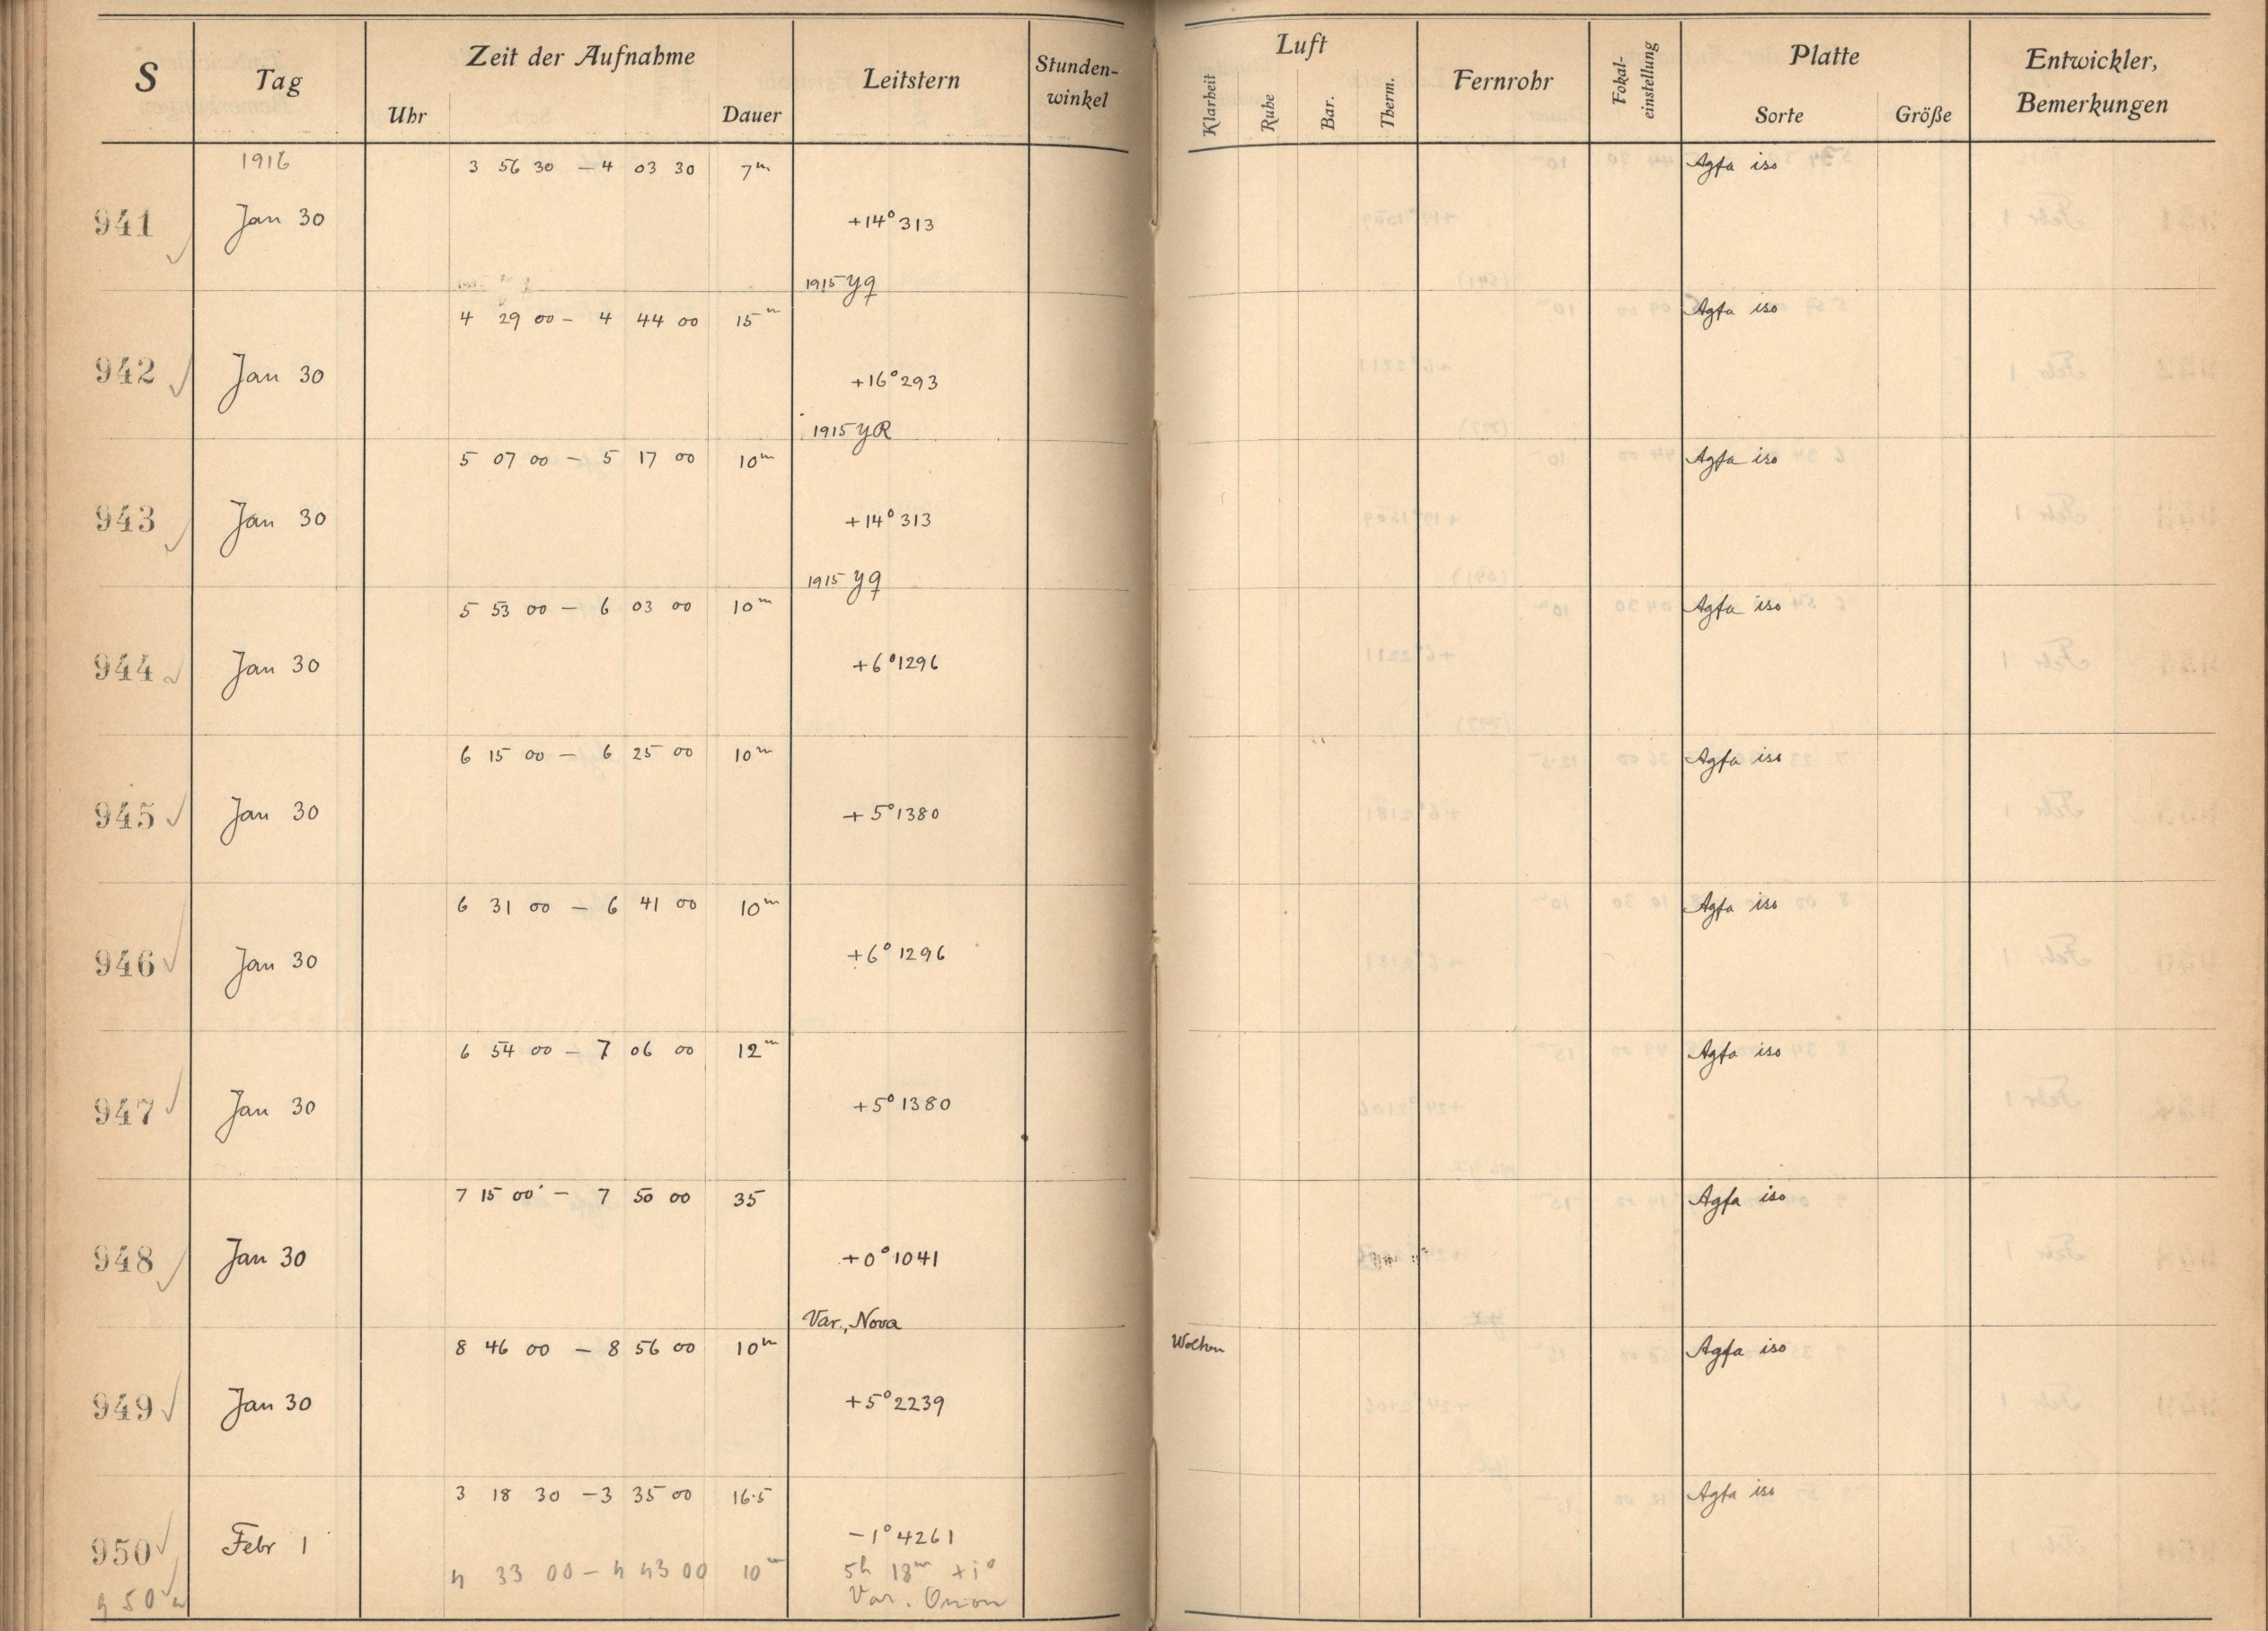 S Tag Zeit der Aufnahme Leitstern Stunden-winkel Luft Fernrohr Fokal-einstellung Platte Entwickler, Bemerkungen
Uhr Dauer Klarheit Ruhe Bar. Therm. Sorte Größe
1916 3 56 30 – 4 03 30 7m Agfa iso
941 Jan 30 +14° 313
1915 yq
4 29 00 – 4 44 00 15m Agfa iso
942 Jan 30 +16° 293
1915 yR
5 07 00 – 5 17 00 10m Agfa iso
943 Jan 30 +14° 313
1915 yq
5 53 00 – 6 03 00 10m Agfa iso
944 Jan 30 +6° 1296
6 15 00 – 6 25 00 10m Agfa iso
945 Jan 30 +5° 1380
6 31 00 – 6 41 00 10m Agfa iso
946 Jan 30 +6° 1296
6 54 00 – 7 06 00 12m Agfa iso
947 Jan 30 +5° 1380
7 15 00 – 7 50 00 35 Agfa iso
948 Jan 30 +0° 1041
Var., Nova
8 46 00 – 8 56 00 10m Wolken Agfa iso
949 Jan 30 +5° 2239
3 18 30 – 3 35 00 16.5 Agfa iso
950 Febr 1 –1° 4261
4 33 00 – 4 43 00 10m 5h 18m +1°
950a Var. Orion